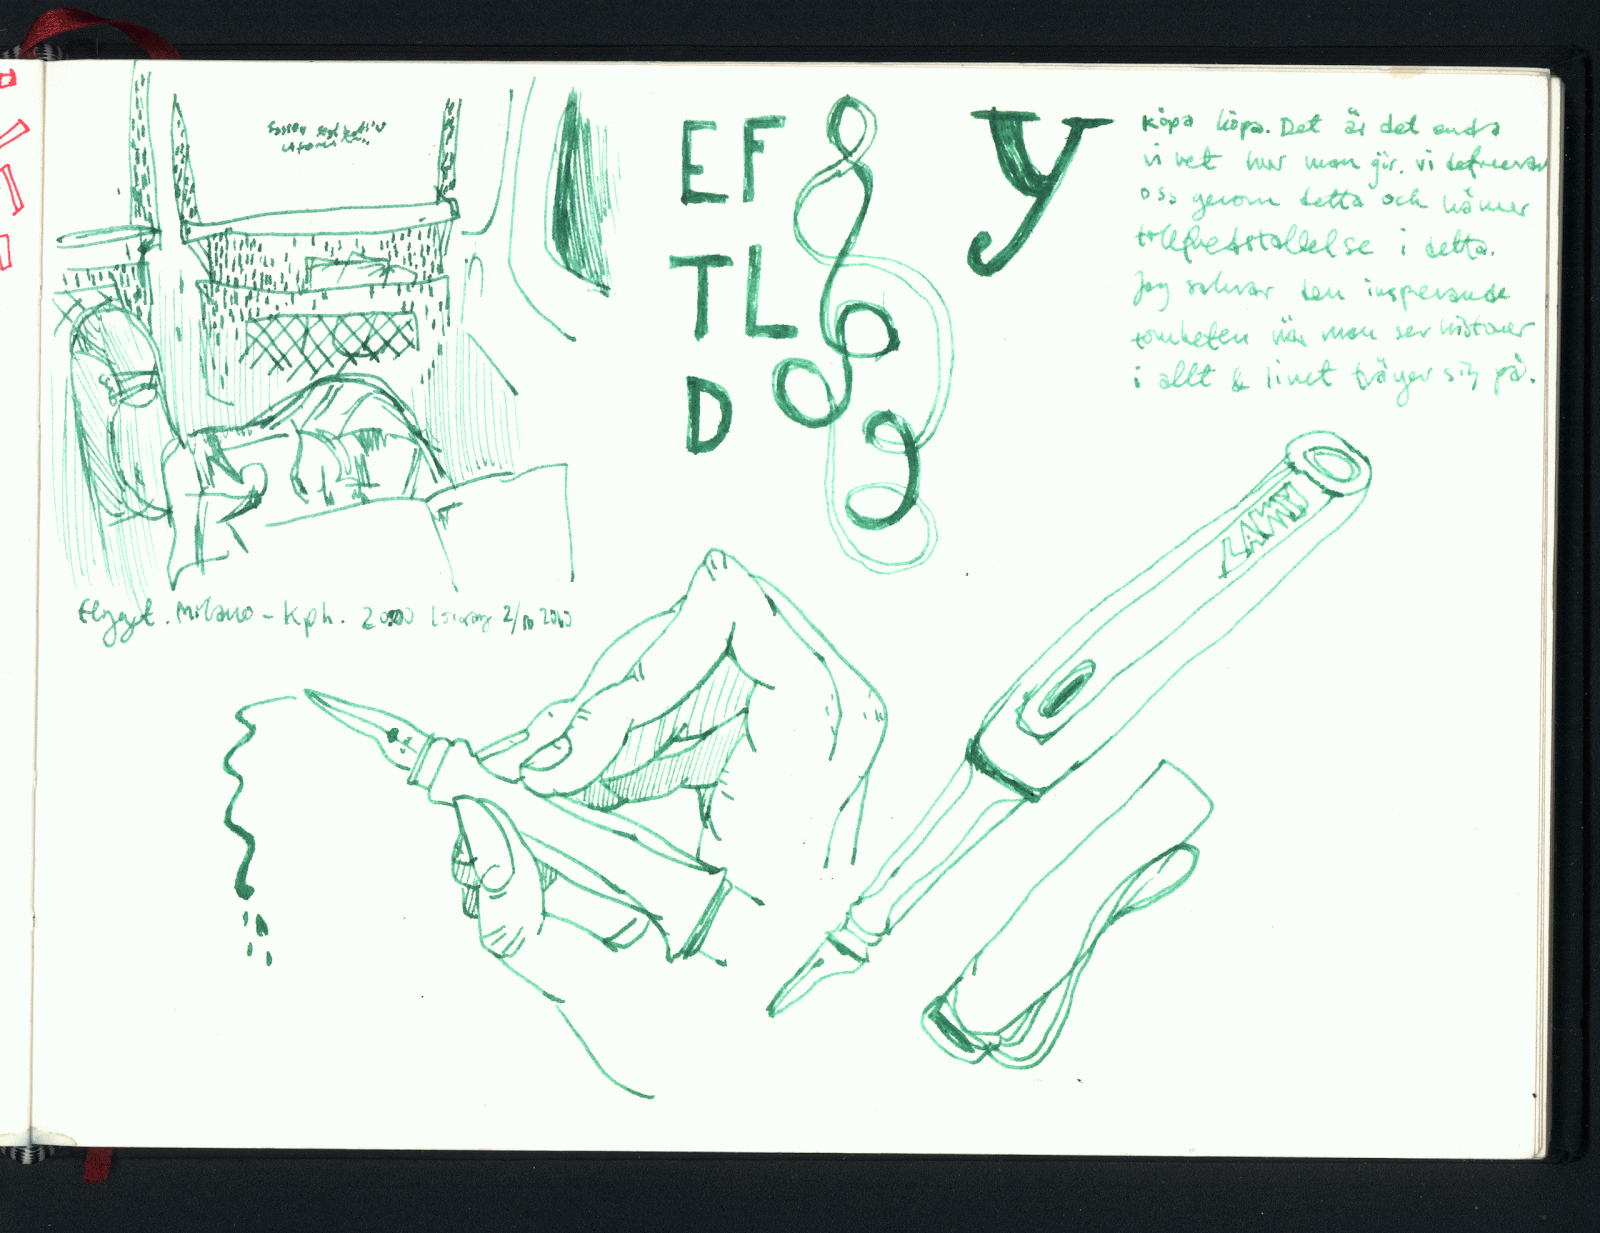 EF
TL
D
y
Köpa köpa. Det är det enda
vi vet hur man gör. vi definierar
oss genom detta och känner
tillfredställelse i detta.
Jag saknar den inspirerande
tomheten när man ser historier
i allt & livet tränger sig på.
LAMY
Flyget. Milano - Kph. 2000 Lördag 2/10 2010